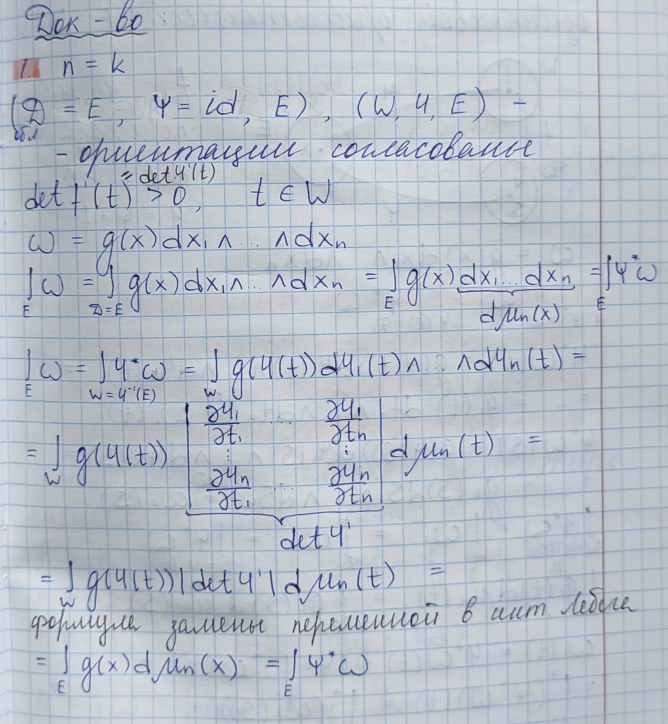 Док-во:
1. n = k
(D = E, Ψ = id, E), (W, φ, E) -
обл.
- ориентации согласованы
= det φ'(t)
det f'(t) > 0, t ∈ W
ω = g(x) dx₁ ∧ .. ∧ dxₙ
∫_E ω = ∫_{D=E} g(x) dx₁ ∧ .. ∧ dxₙ = ∫_E g(x) dx₁ ... dxₙ = ∫_E Ψ*ω
dμₙ(x)
∫_E ω = ∫_{W=φ⁻¹(E)} φ*ω = ∫_W g(φ(t)) dφ₁(t) ∧ .. ∧ dφₙ(t) =
= ∫_W g(φ(t)) | ∂φ₁/∂t₁ ... ∂φ₁/∂tₙ ⋮ ⋮ ∂φₙ/∂t₁ ... ∂φₙ/∂tₙ | dμₙ(t) =
det φ'
= ∫_W g(φ(t)) |det φ'| dμₙ(t) =
формула замены переменной в инт Лебега
= ∫_E g(x) dμₙ(x) = ∫_E Ψ*ω